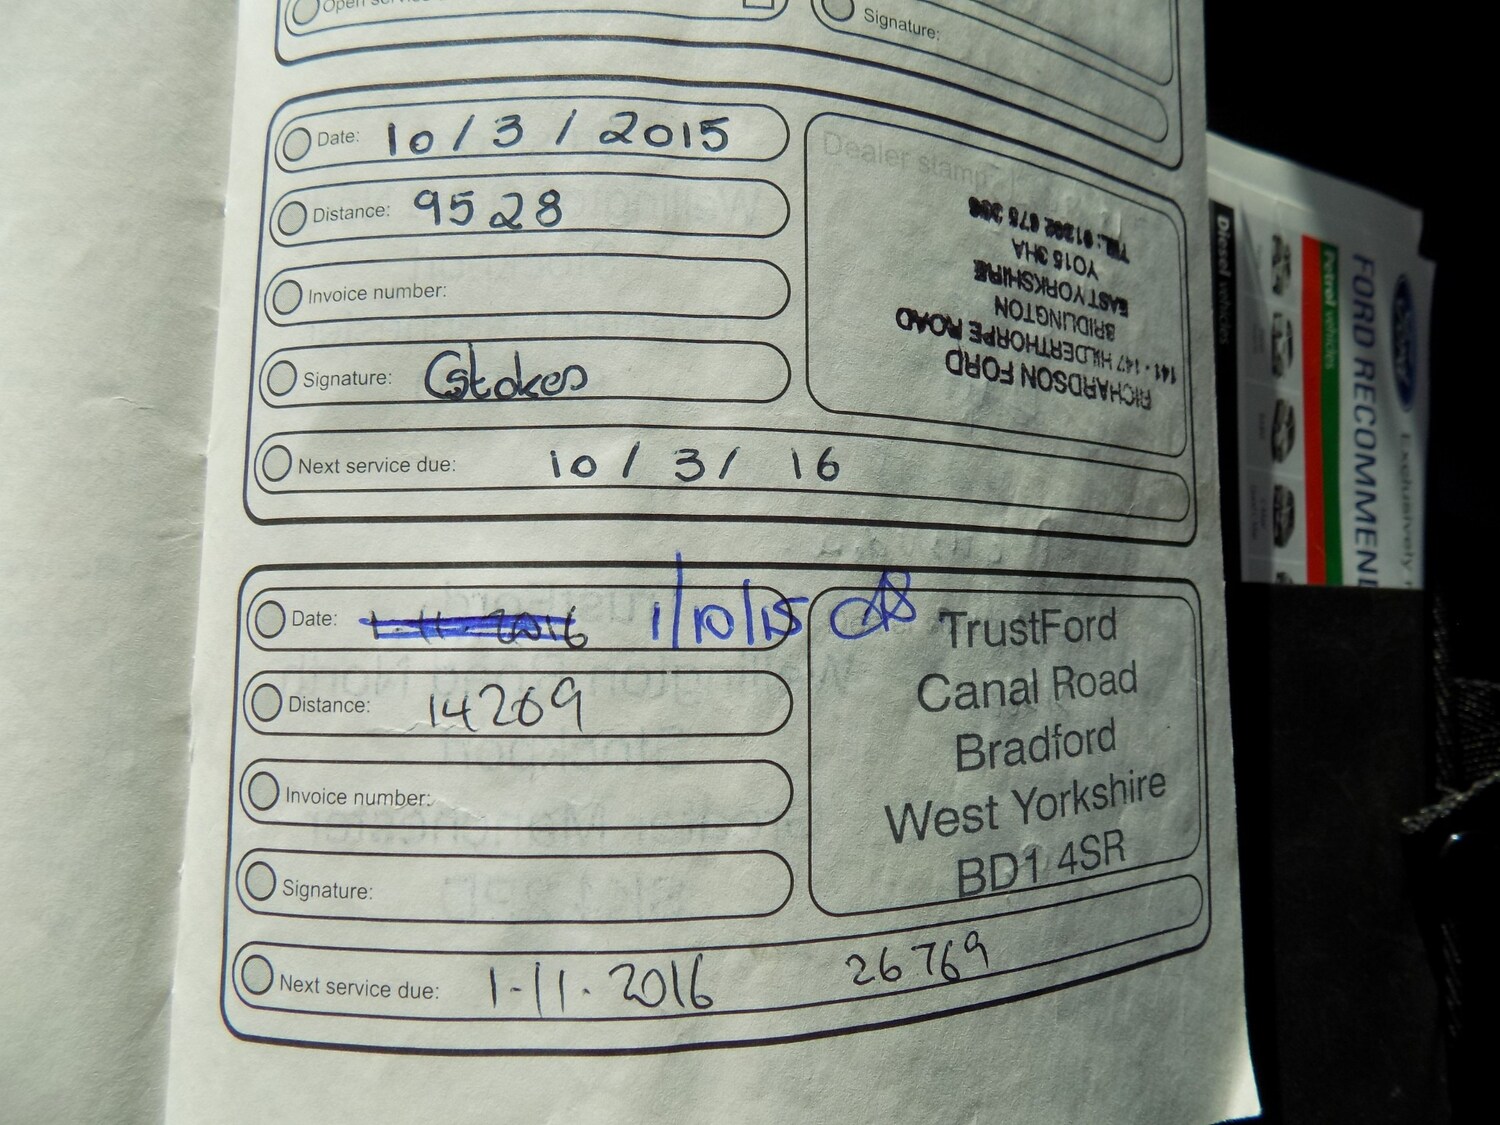 Open
Signature:
Date: 10/3/2015
Distance: 9528
Invoice number:
Signature: CStokes
Next service due: 10/3/16
Dealer stamp
RICHARDSON FORD
141 - 147 HILDERTHORPE ROAD
BRIDLINGTON
EAST YORKSHIRE
YO15 3HA
TEL: 01262 678
Date: 1.11.2016 1/10/15
Distance: 14269
Invoice number:
Signature:
Next service due: 1-11.2016 26769
TrustFord
Canal Road
Bradford
West Yorkshire
BD1 4SR
Exclusively
FORD RECOMMEND
Petrol vehicles
Diesel vehicles